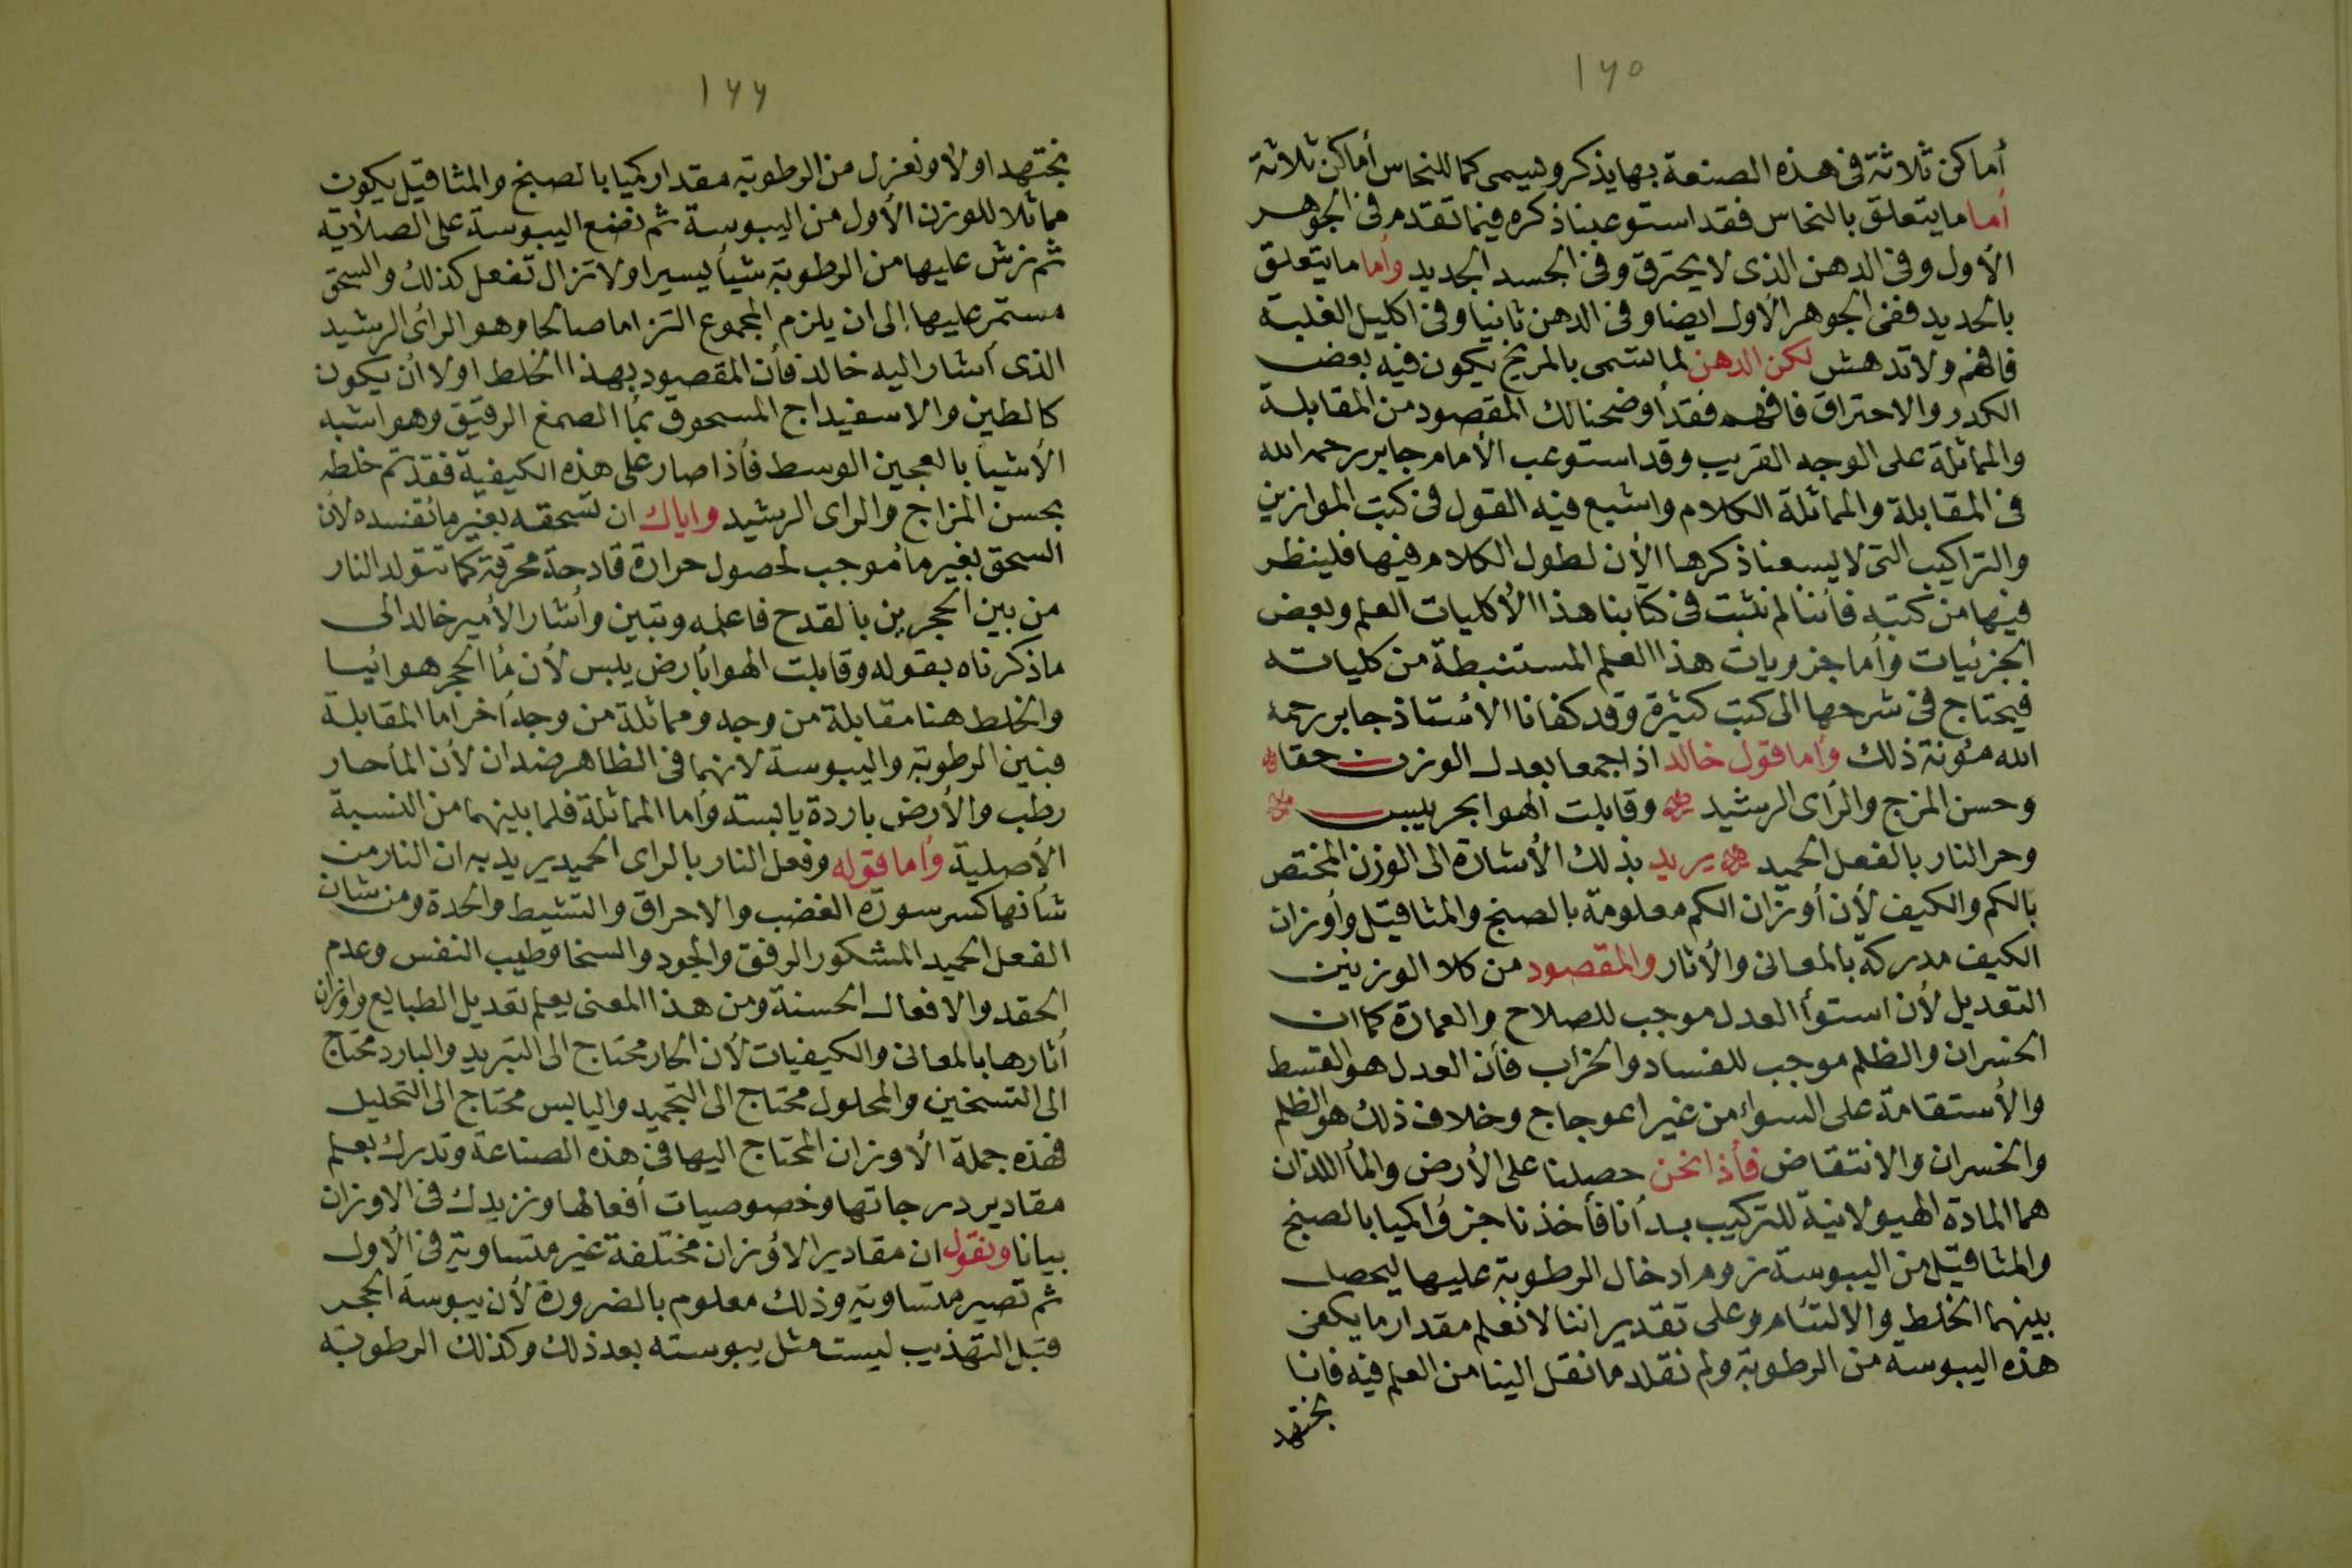 ١٦٥
أماكن ثلاثة فى هذه الصنعة بها يذكر ويسمى كما للنحاس أماكن ثلاثة
أما ما يتعلق بالنحاس فقد استوعبنا ذكره فيما تقدم فى الجوهر
الأول وفى الدهن الذى لا يحترق وفى الجسد الجديد وأما ما يتعلق
بالحديد ففى الجوهر الأول ايضا وفى الدهن ثانيا وفى اكليل الغلبة
فافهم ولا تدهش لكن الدهن لما لتسمى بالمريخ يكون فيه بعض
الكدر والاحتراق فافهم فقد أوضحنا لك المقصود من المقابلة
والمماثلة على الوجه القريب وقد استوعب الأمام جابر رحمه الله
فى المقابلة والمماثلة الكلام واشبع فيه القول فى كتب الموازين
والتراكيب التى لا يسعنا ذكرها الأن لطول الكلام فيها فلينظر
فيها من كتبه فأننا لم نثبت فى كتابنا هذا الأكليات العلم وبعض
الجزئيات وأما جزويات هذا العلم المستنبطة من كلياته
فيحتاج فى شرحها الى كتب كثيرة وقد كفانا الأستاذ جابر رحمه
الله مئونة ذلك وأما قول خالد اذا جمعا بعدل الوزن حقا
وحسن المزج والرأى الرشيد وقابلت الهوا بحر يبس
وحر النار بالفعل الحميد يريد بذلك الأشارة الى الوزن المختص
بالكم والكيف لأن أوزان الكم معلومة بالصنج والمثاقيل وأوزان
الكيف مدركة بالمعانى والأثار والمقصود من كلا الوزنين
التعديل لأن استوأ العدل موجب للصلاح والعمارة كما ان
الخسران والظلم موجب للفساد والخراب فأن العدل هو القسط
والأستقامة على السواء من غير اعوجاج وخلاف ذلك هو الظلم
والخسران والانتقاض فأذا نحن حصلنا على الأرض والمأ اللذان
هما المادة الهيولانية للتركيب بدأنا فأخذنا جزؤا كميا بالصنج
والمثاقيل من اليبوسة نروم ادخال الرطوبة عليها ليحصل
بينهما الخلط والالتئام وعلى تقدير اننا لا نعلم مقدار ما يكفى
هذه اليبوسة من الرطوبة ولم نقلد ما نقل الينا من العلم فيه فانا
نجتهد
١٦٦
نجتهد اولا ونعزل من الرطوبة مقدار كميا بالصنج والمثاقيل يكون
مماثلا للوزن الأول من اليبوسة ثم نضع اليبوسة على الصلاية
ثم نرش عليها من الرطوبة شيأ يسيرا ولا تزال تفعل كذلك والسحق
مستمر عليها إلى ان يلزم المجموع التزاما صالحا وهو الرأى الرشيد
الذى أشار اليه خالد فأن المقصود بهذا الخلط اولا أن يكون
كالطين والاسفيداج المسحوق بمأ الصمغ الرقيق وهو اشبه
الأشيأ بالعجين الوسط فأذا صار على هذه الكيفية فقد تم خلطه
بحسن المزاج والراى الرشيد واياك ان تسحقه بغير مأ تفسده لأن
السحق بغير مأ موجب لحصول حرارة قادحة محرقة كما تتولد النار
من بين الحجرين بالقدح فاعلمه وتبين وأشار الأمير خالد الى
ما ذكرناه بقوله وقابلت الهوا بأرض يبس لأن مأ الحجر هوائيا
والخلط هنا مقابلة من وجه ومماثلة من وجه أخر اما المقابلة
فبين الرطوبة واليبوسة لانهما فى الظاهر ضدان لأن المأ حار
رطب والأرض باردة يابسة وأما المماثلة فلما بينهما من النسبة
الأصلية وأما قوله وفعل النار بالراى الحميد يريد به ان النار من
شأنها كسر سورة الغضب والاحراق والتشيط والحدة ومن شان
الفعل الحميد المشكور الرفق والجود والسخا وطيب النفس وعدم
الحقد والافعال الحسنة ومن هذا المعنى يعلم تعديل الطبايع واوزان
أثارها بالمعانى والكيفيات لأن الحار محتاج الى التبريد والبارد محتاج
الى التسخين والمحلول محتاج الى التجميد واليابس محتاج الى التحليل
فهذه جملة الأوزان المحتاج اليها فى هذه الصناعة وتدرك بعلم
مقادير درجاتها وخصوصيات أفعالها ونزيدك فى الاوزان
بيانا ونقول ان مقادير الأوزان مختلفة غير متساوية فى الأول
ثم تصير متساوية وذلك معلوم بالضرورة لأن يبوسة الحجر
قبل التهذيب ليست مثل يبوسته بعد ذلك وكذلك الرطوبة